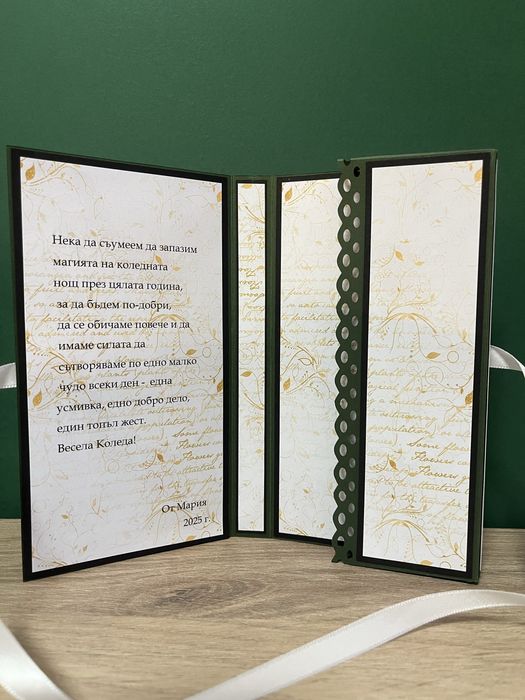 Нека да съумеем да запазим
магията на коледната
нощ през цялата година,
за да бъдем по-добри,
да се обичаме повече и да
имаме силата да
сътворяваме по едно малко
чудо всеки ден - една
усмивка, едно добро дело,
един топъл жест.
Весела Коледа!
От Мария
2025 г.